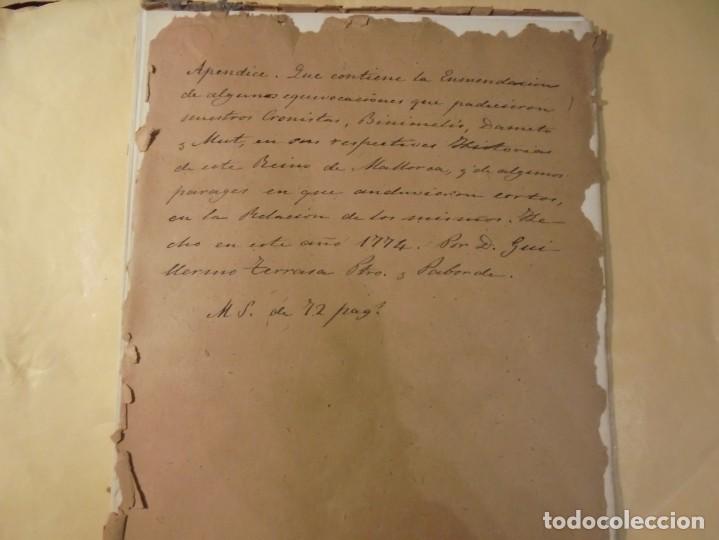 Apendice. Que contiene la Enmendacion
de algunas equivocaciones que padecieron
nuestros Cronistas, Binimelis, Dameto
y Mut, en sus respectives Historias
de este Reino de Mallorca, y de algunos
parages en que anduvieron cortos,
en la Relacion de los mismos. He-
cho en este año 1774. Por D. Gui
llermo Terrasa Pbro. y Paborde.
M S. de 72 pags
todocoleccion.net